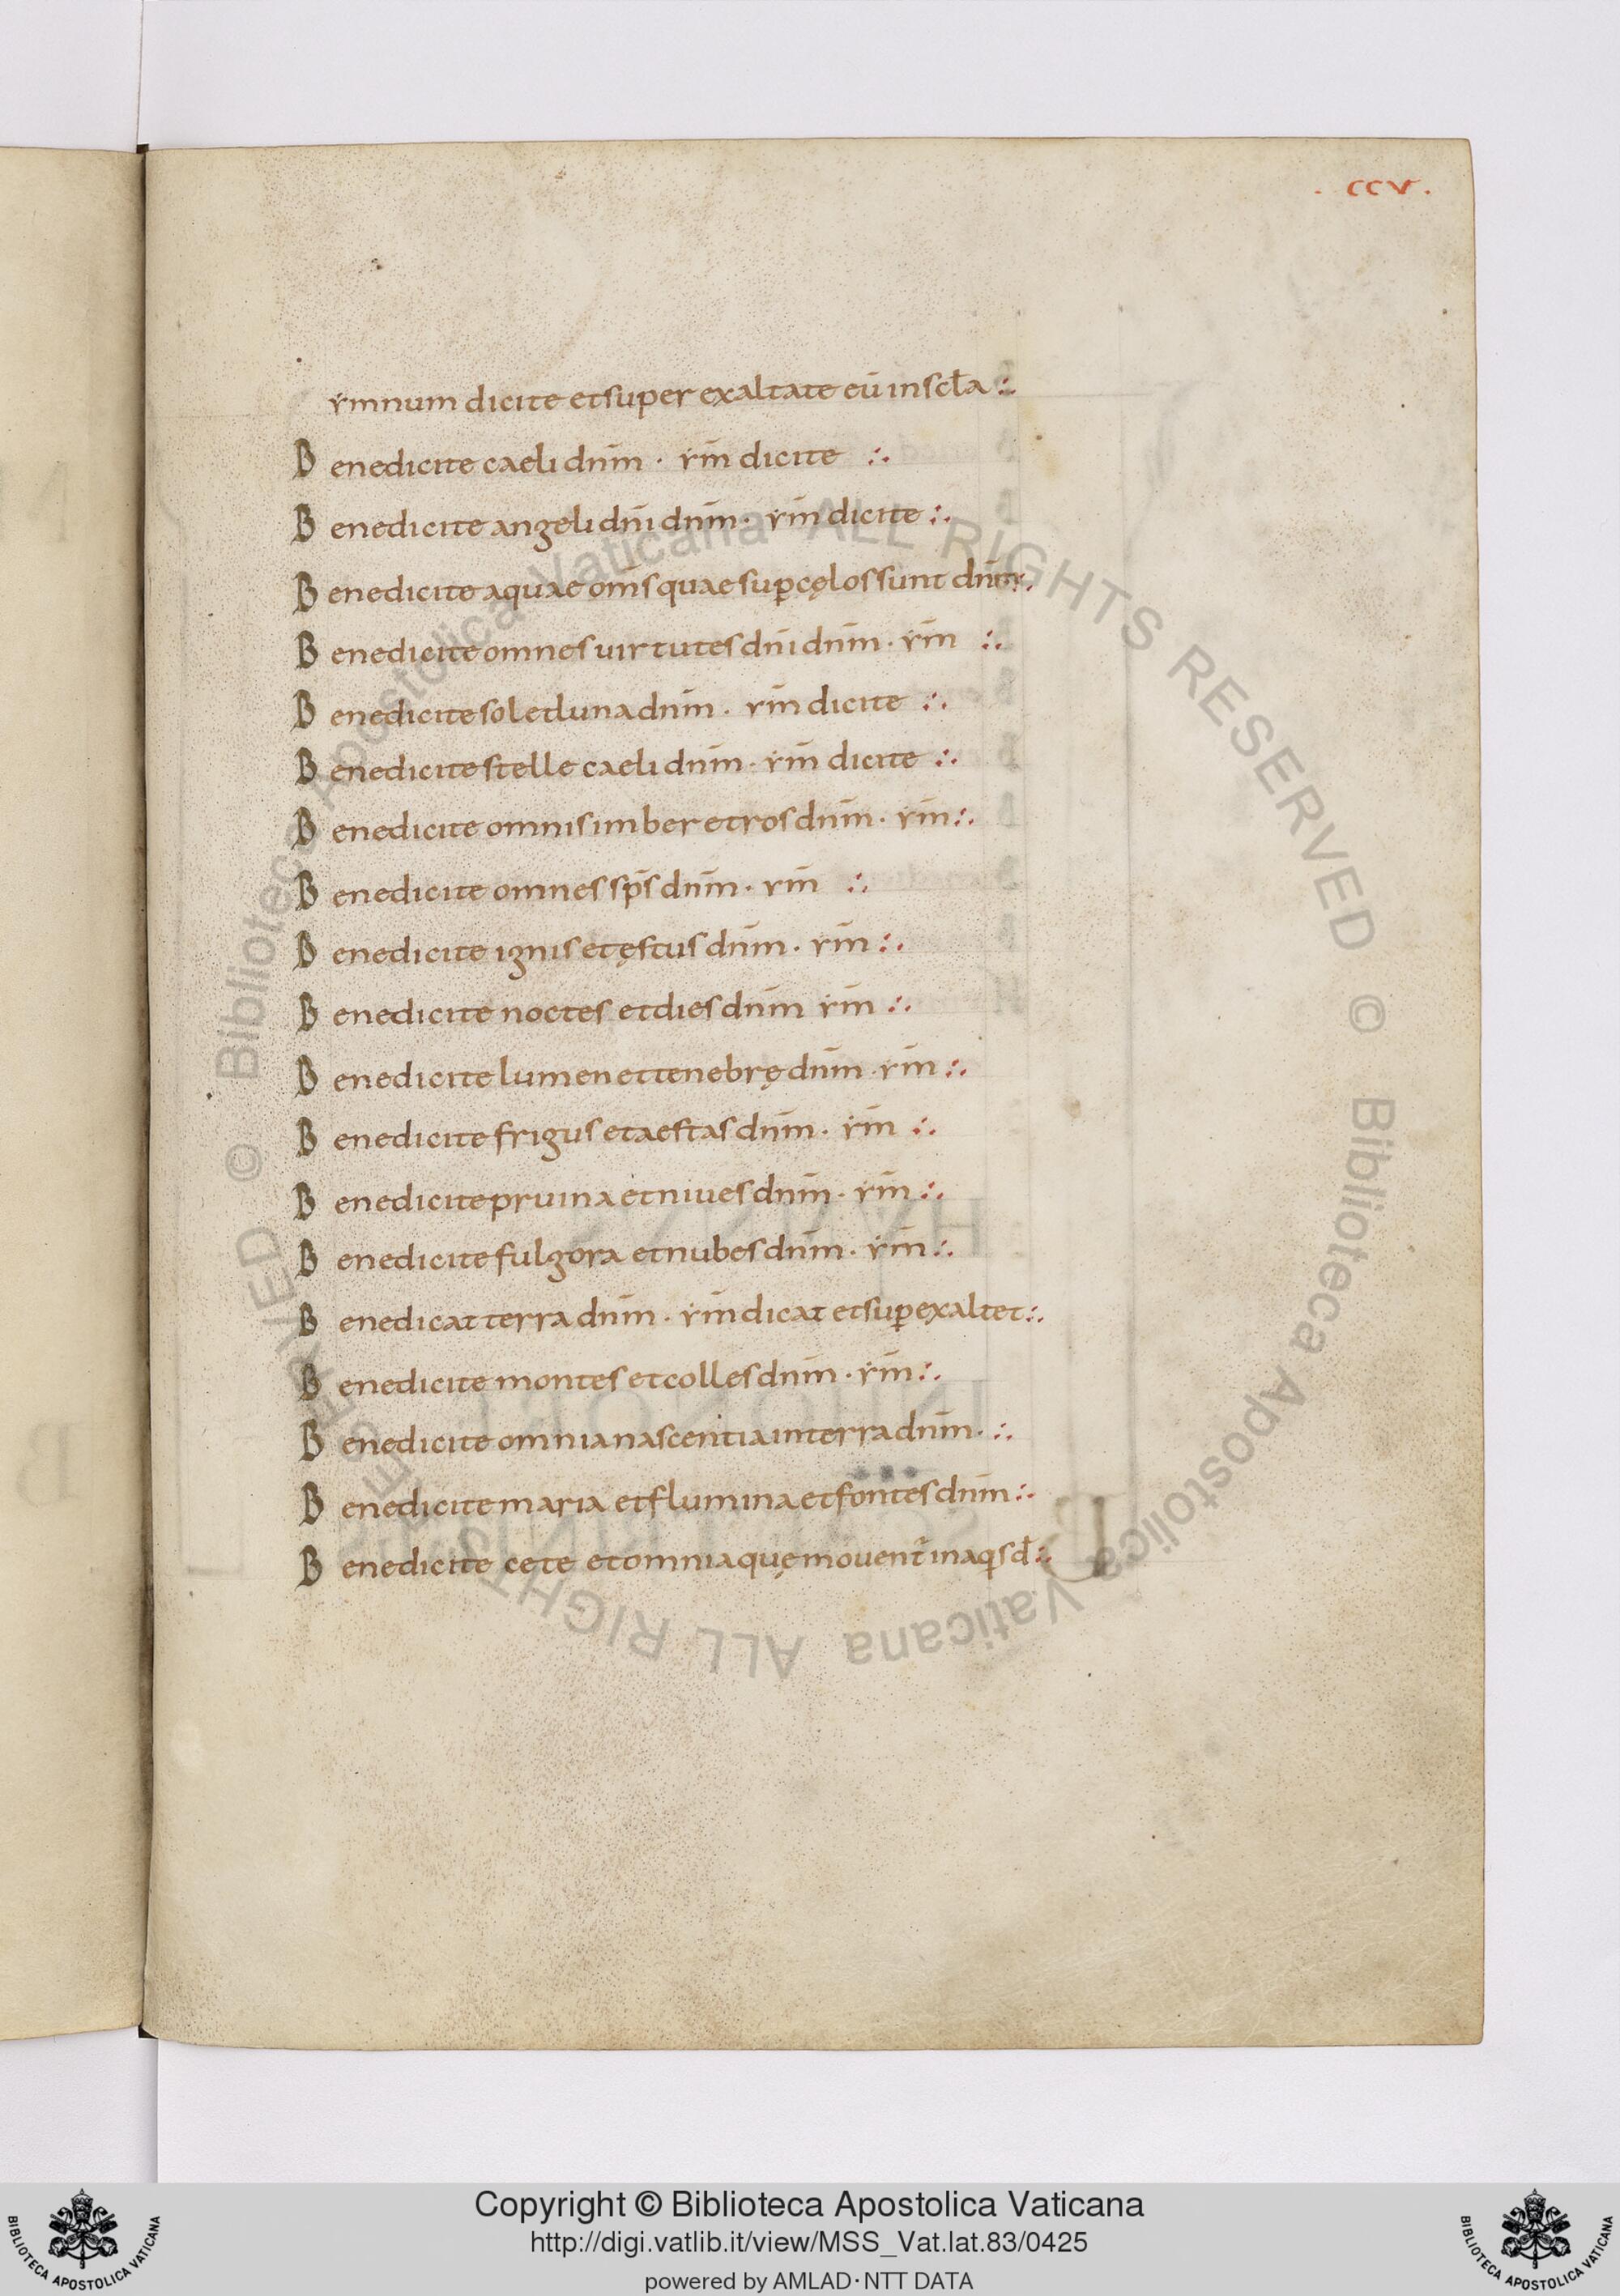 . CCV .
ymnum dicite et super exaltate eū in sctƚa :.
Benedicite caeli dnm̄ · ym̄ dicite :.
Benedicite angeli dnı̄ dnm̄ · ym̄ dicite :.
Benedicite aquae om̄s quae sup̲ cęlos sunt dnm̄ :.
Benedicite omnes uirtutes dnı̄ dnm̄ · ym̄ :.
Benedicite sol et luna dnm̄ · ym̄ dicite :.
Benedicite stelle caeli dnm̄ · ym̄ dicite :.
Benedicite omnis imber et ros dnm̄ · ym̄ :.
Benedicite omnes sp̄s dnm̄ · ym̄ :.
Benedicite ignis et ęstus dnm̄ · ym̄ :.
Benedicite noctes et dies dnm̄ ym̄ :.
Benedicite lumen et tenebrę dnm̄ · ym̄ :.
Benedicite frigus et aestas dnm̄ · ym̄ :.
Benedicite pruina et niues dnm̄ · ym̄ :.
Benedicite fulgora et nubes dnm̄ · ym̄ :.
Benedicat terra dnm̄ · ym̄ dicat et sup̲exaltet :.
Benedicite montes et colles dnm̄ · ym̄ :.
Benedicite omnia nascentia in terra dnm̄ · :.
Benedicite maria et flumina et fontes dnm̄ :.
Benedicite cete et omnia quę mouent̄ in aq̄s d̄ :.
© Biblioteca Apostolica Vaticana ALL RIGHTS RESERVED © Biblioteca Apostolica Vaticana ALL RIGHTS RESERVED
BIBLIOTECA APOSTOLICA VATICANA
Copyright © Biblioteca Apostolica Vaticana
http://digi.vatlib.it/view/MSS_Vat.lat.83/0425
powered by AMLAD·NTT DATA
BIBLIOTECA APOSTOLICA VATICANA